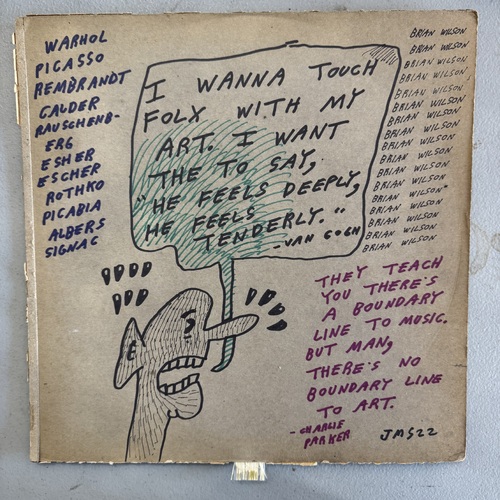 WARHOL
PICASSO
REMBRANDT
CALDER
RAUSCHENB-
ERG
ESHER
ESCHER
ROTHKO
PICABIA
ALBERS
SIGNAC
I WANNA TOUCH
FOLX WITH MY
ART. I WANT
THE TO SAY,
"HE FEELS DEEPLY,
HE FEELS
TENDERLY."
-VAN GOGH
BRIAN WILSON
BRIAN WILSON
BRIAN WILSON
BRIAN WILSON
BRIAN WILSON
BRIAN WILSON
BRIAN WILSON
BRIAN WILSON
BRIAN WILSON
BRIAN WILSON
BRIAN WILSON
BRIAN WILSON
BRIAN WILSON
BRIAN WILSON
BRIAN WILSON
BRIAN WILSON
THEY TEACH
YOU THERE'S
A BOUNDARY
LINE TO MUSIC.
BUT MAN,
THERE'S NO
BOUNDARY LINE
TO ART.
-CHARLIE
PARKER
JMS22